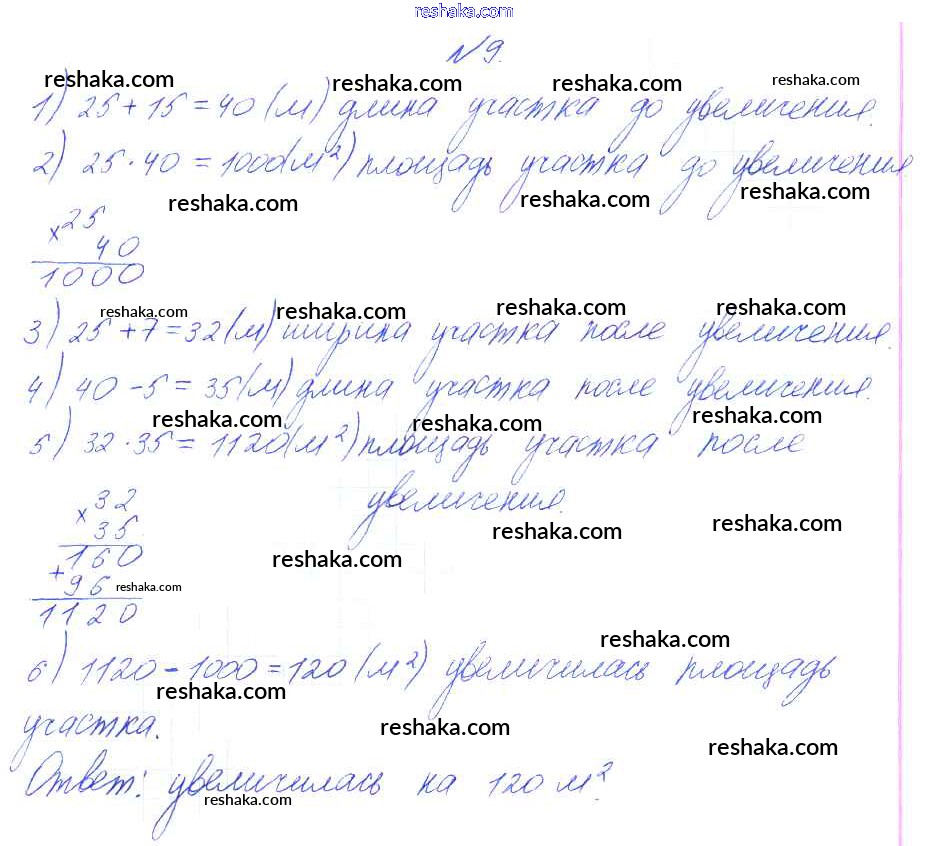 reshaka.com
№ 9.
reshaka.com reshaka.com reshaka.com reshaka.com
1) 25 + 15 = 40 (м) длина участка до увеличения.
2) 25 · 40 = 1000 (м²) площадь участка до увеличения
reshaka.com reshaka.com reshaka.com
× 25
40
1000
reshaka.com reshaka.com reshaka.com reshaka.com
3) 25 + 7 = 32 (м) ширина участка после увеличения.
4) 40 - 5 = 35 (м) длина участка после увеличения.
reshaka.com reshaka.com reshaka.com
5) 32 · 35 = 1120 (м²) площадь участка после
увеличения.
× 32
35
reshaka.com reshaka.com reshaka.com
160
+ 96 reshaka.com
1120
reshaka.com
6) 1120 - 1000 = 120 (м²) увеличилась площадь
reshaka.com
участка.
reshaka.com reshaka.com
Ответ: увеличилась на 120 м².
reshaka.com